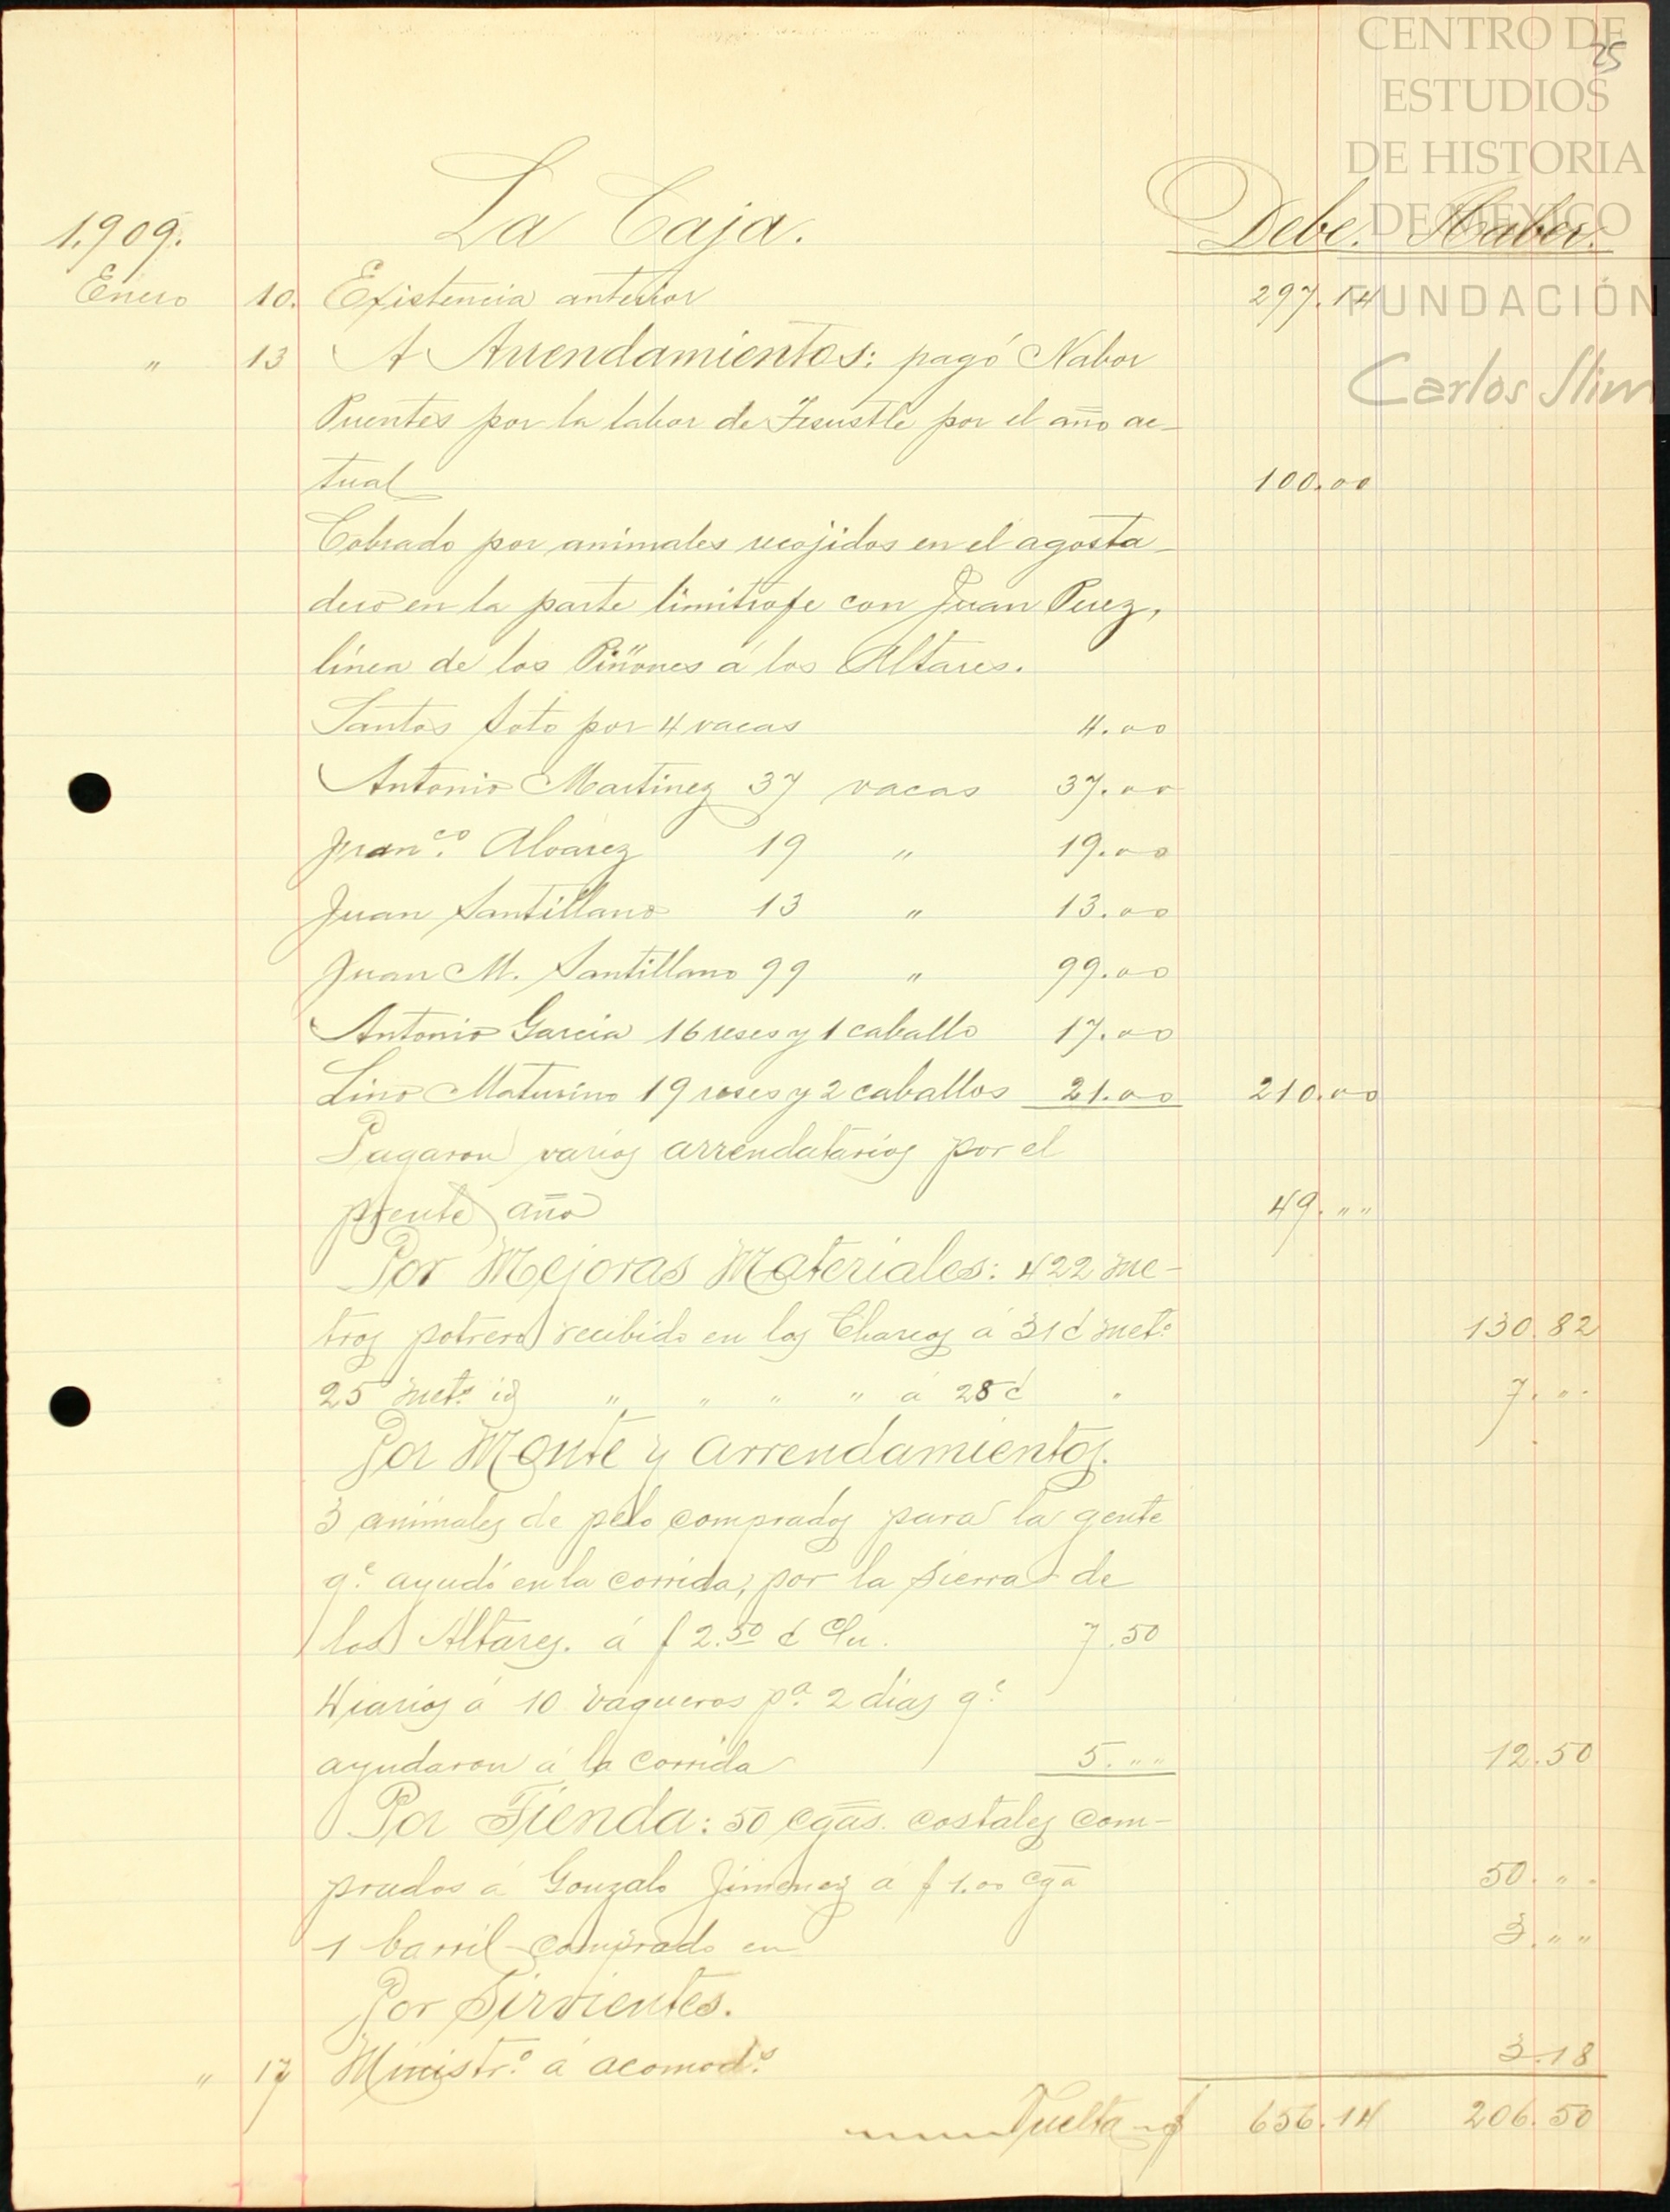 CENTRO DE
ESTUDIOS
DE HISTORIA
DE MEXICO
FUNDACIÓN
Carlos Slim
25
1.909. La Caja. Debe. Haber.
Enero 10. Existencia anterior 297.14
" 13 A Arrendamientos: pagó Nabor
Puentes por la labor de por el año ac-
tual 100.00
Cobrado por animales recojidos en el agosta-
dero en la parte limitrofe con Juan Perez,
línea de los Piñones á los Altares.
Santos Soto por 4 vacas 4.00
Antonio Martinez 37 vacas 37.00
Franco. Alvarez 19 " 19.00
Juan Santillano 13 " 13.00
Juan M. Santillano 99 " 99.00
Antonio Garcia 16 reses y 1 caballo 17.00
Lino Maturino 19 reses y 2 caballos 21.00 210.00
Pagaron varios arrendatarios por el
pste año 49. " "
Por Mejoras Materiales: 422 me-
tros potrero recibido en los Charcos á 31 ¢ met.o 130.82
25 met.s id " " " " á 28 ¢ " 7. " "
Por Monte y arrendamientos.
3 animales de pelo comprados para la gente
q.e ayudó en la corrida, por la sierra de
los Altares. á $ 2.50 ¢ c/u. 7.50
Diarios á 10 vaqueros p.a 2 días q.e
ayudaron á la corrida 5. " " 12.50
Por Tienda: 50 cgas. costales com-
prados á Gonzalo Jimenez á $ 1.00 cga 50. " "
1 barril comprado en 3. " "
Por Sirvientes.
" 17 Ministr.o á acomod.s 3.18
Vuelta $ 656.14 206.50